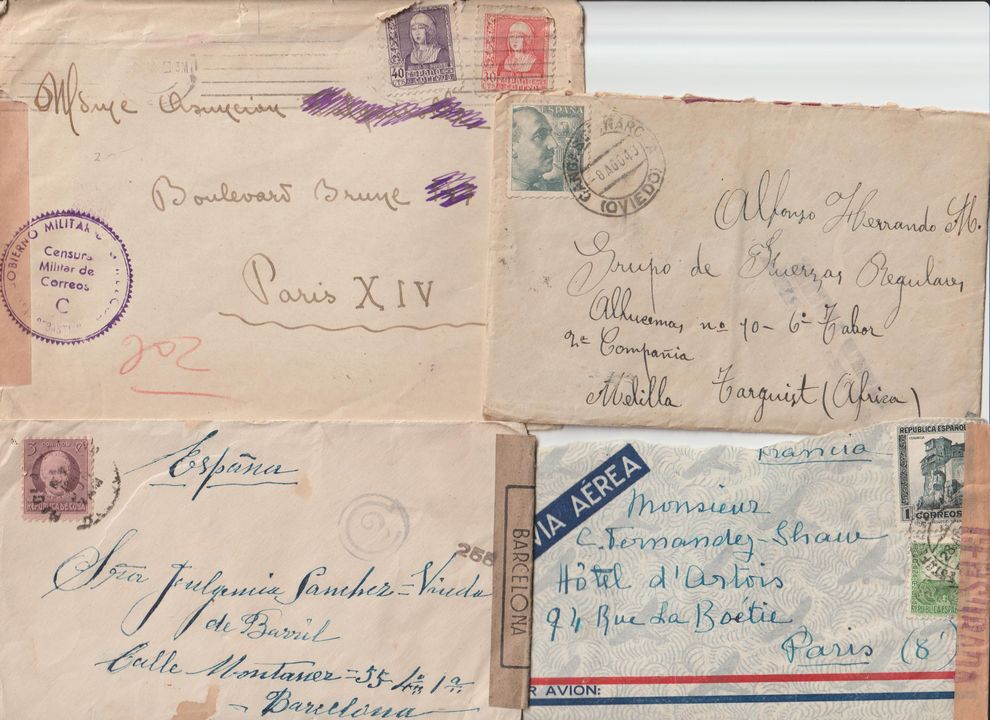 40 CTS ESPAÑA CORREOS
30 CTS
Asuncion
Boulevard Brune
Paris XIV
GOBIERNO MILITAR
Censura
Militar de
Correos
C
202
ESPAÑA
(OVIEDO)
Alfonso Herrando M.
Grupo de Fuerzas Regulares
Alhucemas nº 10 - 6º Tabor
2ª Compañia
Melilla Targuist (Africa)
REPUBLICA DE CUBA
España
255
BARCELONA
Sanchez = Viuda
de
Calle Montaner = 55 4º 1ª
Barcelona
VIA AÉREA
Francia
REPUBLICA ESPAÑOLA
1
CORREOS
Monsieur
C. Fernandez-Shaw
Hôtel d'Artois
94 Rue La Boétie
Paris (8
REPUBLICA ESPAÑOLA
R AVION: